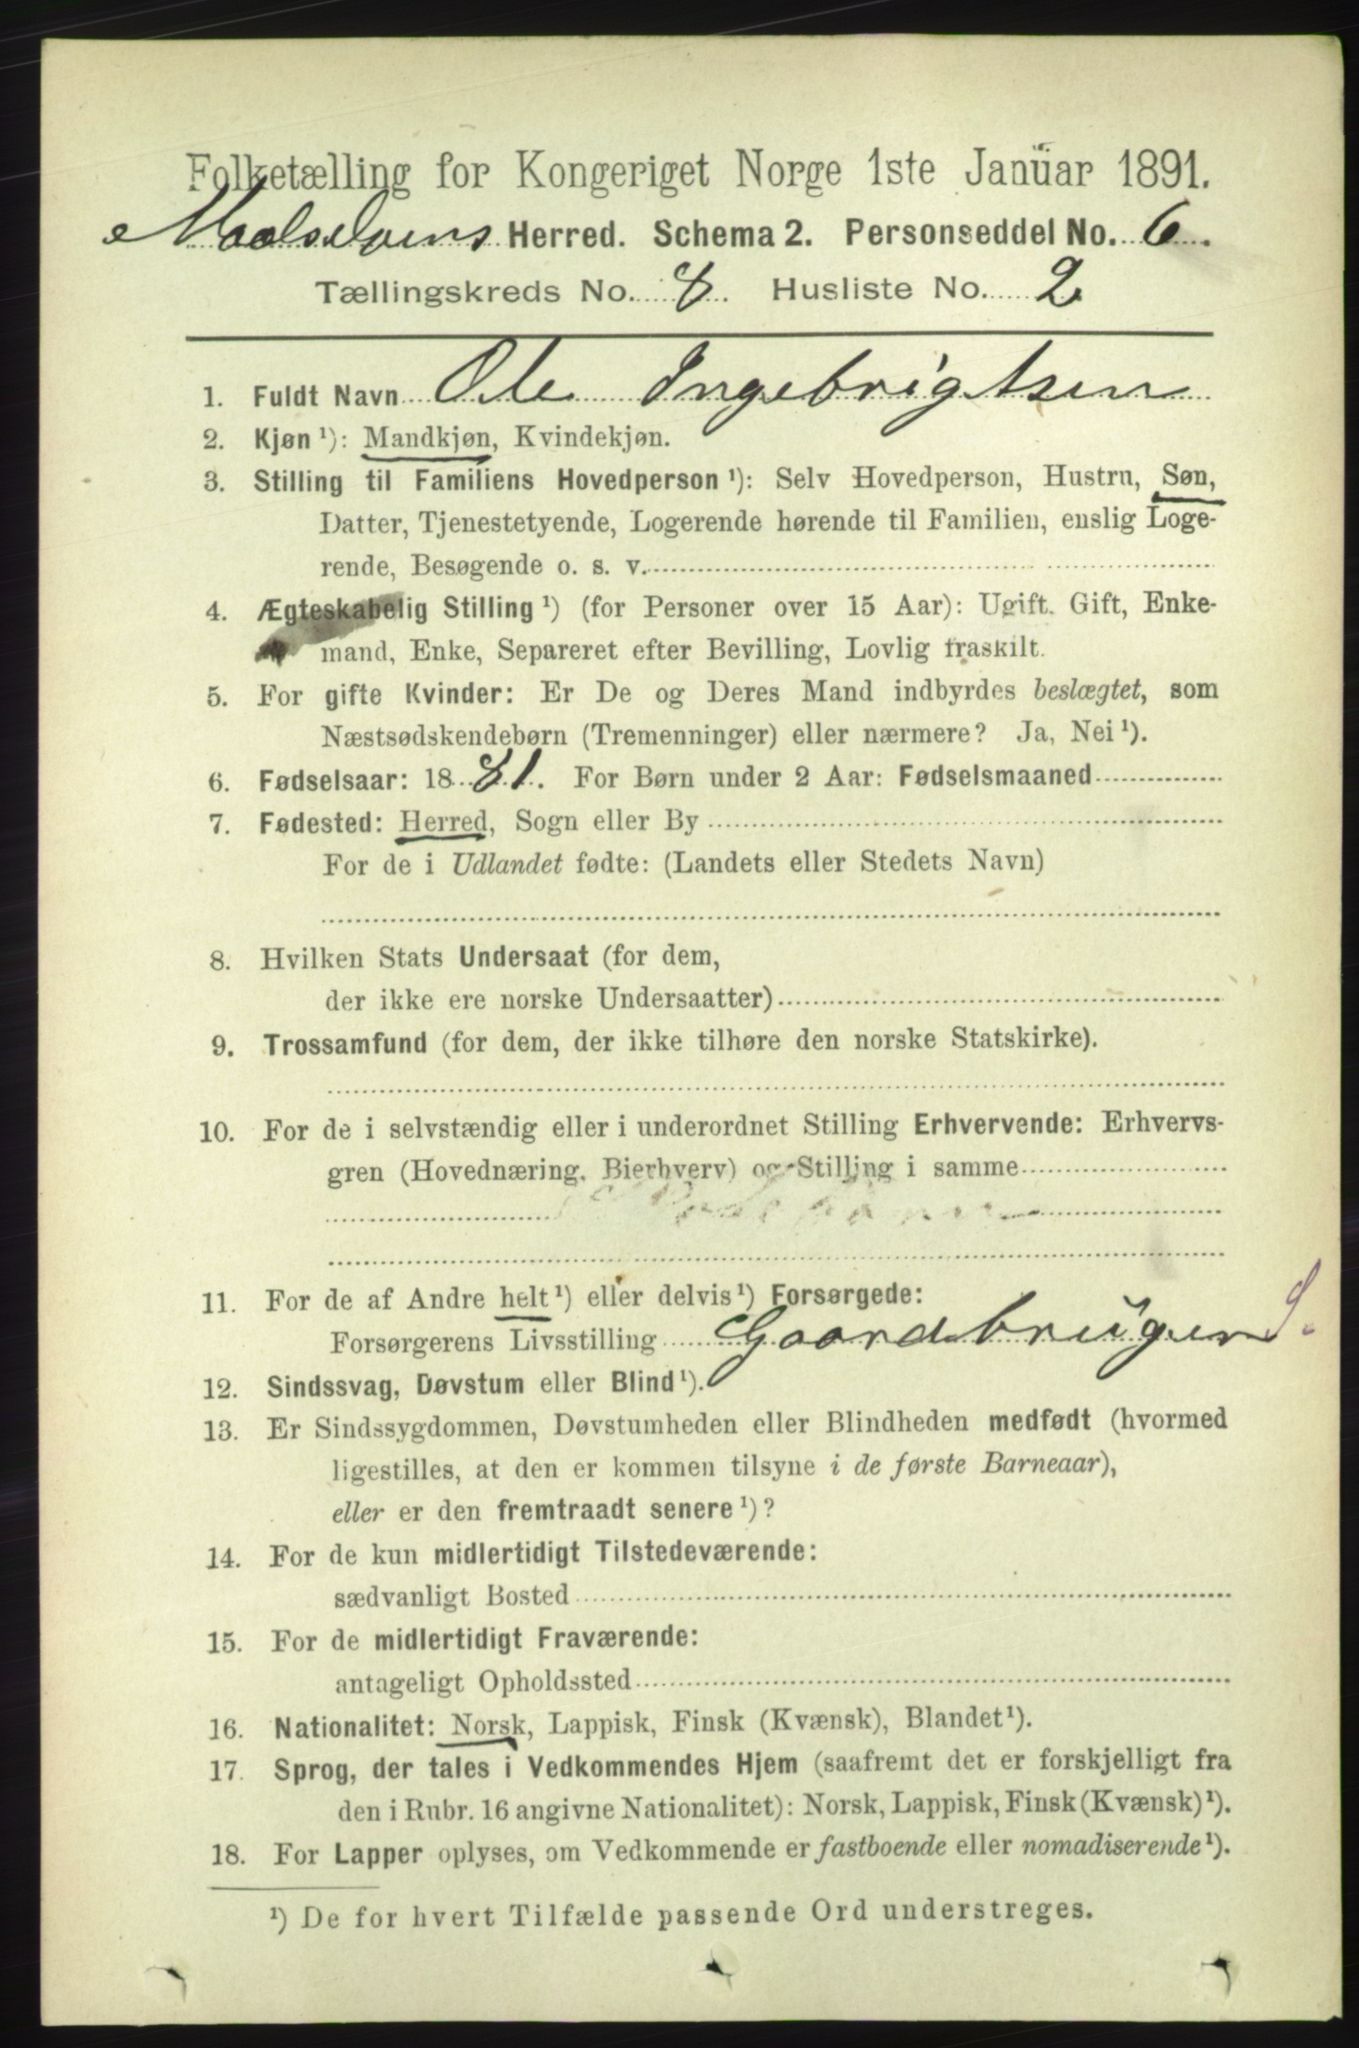 Folketælling for Kongeriget Norge 1ste Januar 1891.
Maalselvens Herred. Schema 2. Personseddel No. 6.
Tællingskreds No. 8. Husliste No. 2
1. Fuldt Navn Ole Ingebrigtsen
2. Kjøn ¹): Mandkjøn, Kvindekjøn.
3. Stilling til Familiens Hovedperson ¹): Selv Hovedperson, Hustru, Søn,
Datter, Tjenestetyende, Logerende hørende til Familien, enslig Loge-
rende, Besøgende o. s. v.
4. Ægteskabelig Stilling ¹) (for Personer over 15 Aar): Ugift. Gift, Enke-
mand, Enke, Separeret efter Bevilling, Lovlig fraskilt.
5. For gifte Kvinder: Er De og Deres Mand indbyrdes beslægtet, som
Næstsødskendebørn (Tremenninger) eller nærmere? Ja, Nei ¹).
6. Fødselsaar: 1881. For Børn under 2 Aar: Fødselsmaaned
7. Fødested: Herred, Sogn eller By
For de i Udlandet fødte: (Landets eller Stedets Navn)
8. Hvilken Stats Undersaat (for dem,
der ikke ere norske Undersaatter)
9. Trossamfund (for dem, der ikke tilhøre den norske Statskirke).
10. For de i selvstændig eller i underordnet Stilling Erhvervende: Erhvervs-
gren (Hovednæring, Bierhverv) og Stilling i samme
11. For de af Andre helt ¹) eller delvis ¹) Forsørgede:
Forsørgerens Livsstilling Gaardbruger S.
12. Sindssvag, Døvstum eller Blind ¹).
13. Er Sindssygdommen, Døvstumheden eller Blindheden medfødt (hvormed
ligestilles, at den er kommen tilsyne i de første Barneaar),
eller er den fremtraadt senere ¹)?
14. For de kun midlertidigt Tilstedeværende:
sædvanligt Bosted
15. For de midlertidigt Fraværende:
antageligt Opholdssted
16. Nationalitet: Norsk, Lappisk, Finsk (Kvænsk), Blandet ¹).
17. Sprog, der tales i Vedkommendes Hjem (saafremt det er forskjelligt fra
den i Rubr. 16 angivne Nationalitet): Norsk, Lappisk, Finsk (Kvænsk) ¹).
18. For Lapper oplyses, om Vedkommende er fastboende eller nomadiserende ¹).
¹) De for hvert Tilfælde passende Ord understreges.